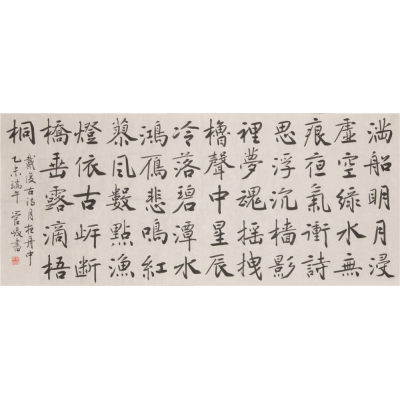 满船明月浸
虚空緑水無
痕夜氣衝詩
思浮沉墙影
裡夢魂摇拽
櫓聲中星辰
冷落碧潭水
鴻鴈悲鳴紅
蓼風數點漁
燈依古岸断
橋垂露滴梧
桐
戴復古詩月夜舟中
乙未端午 管峻書